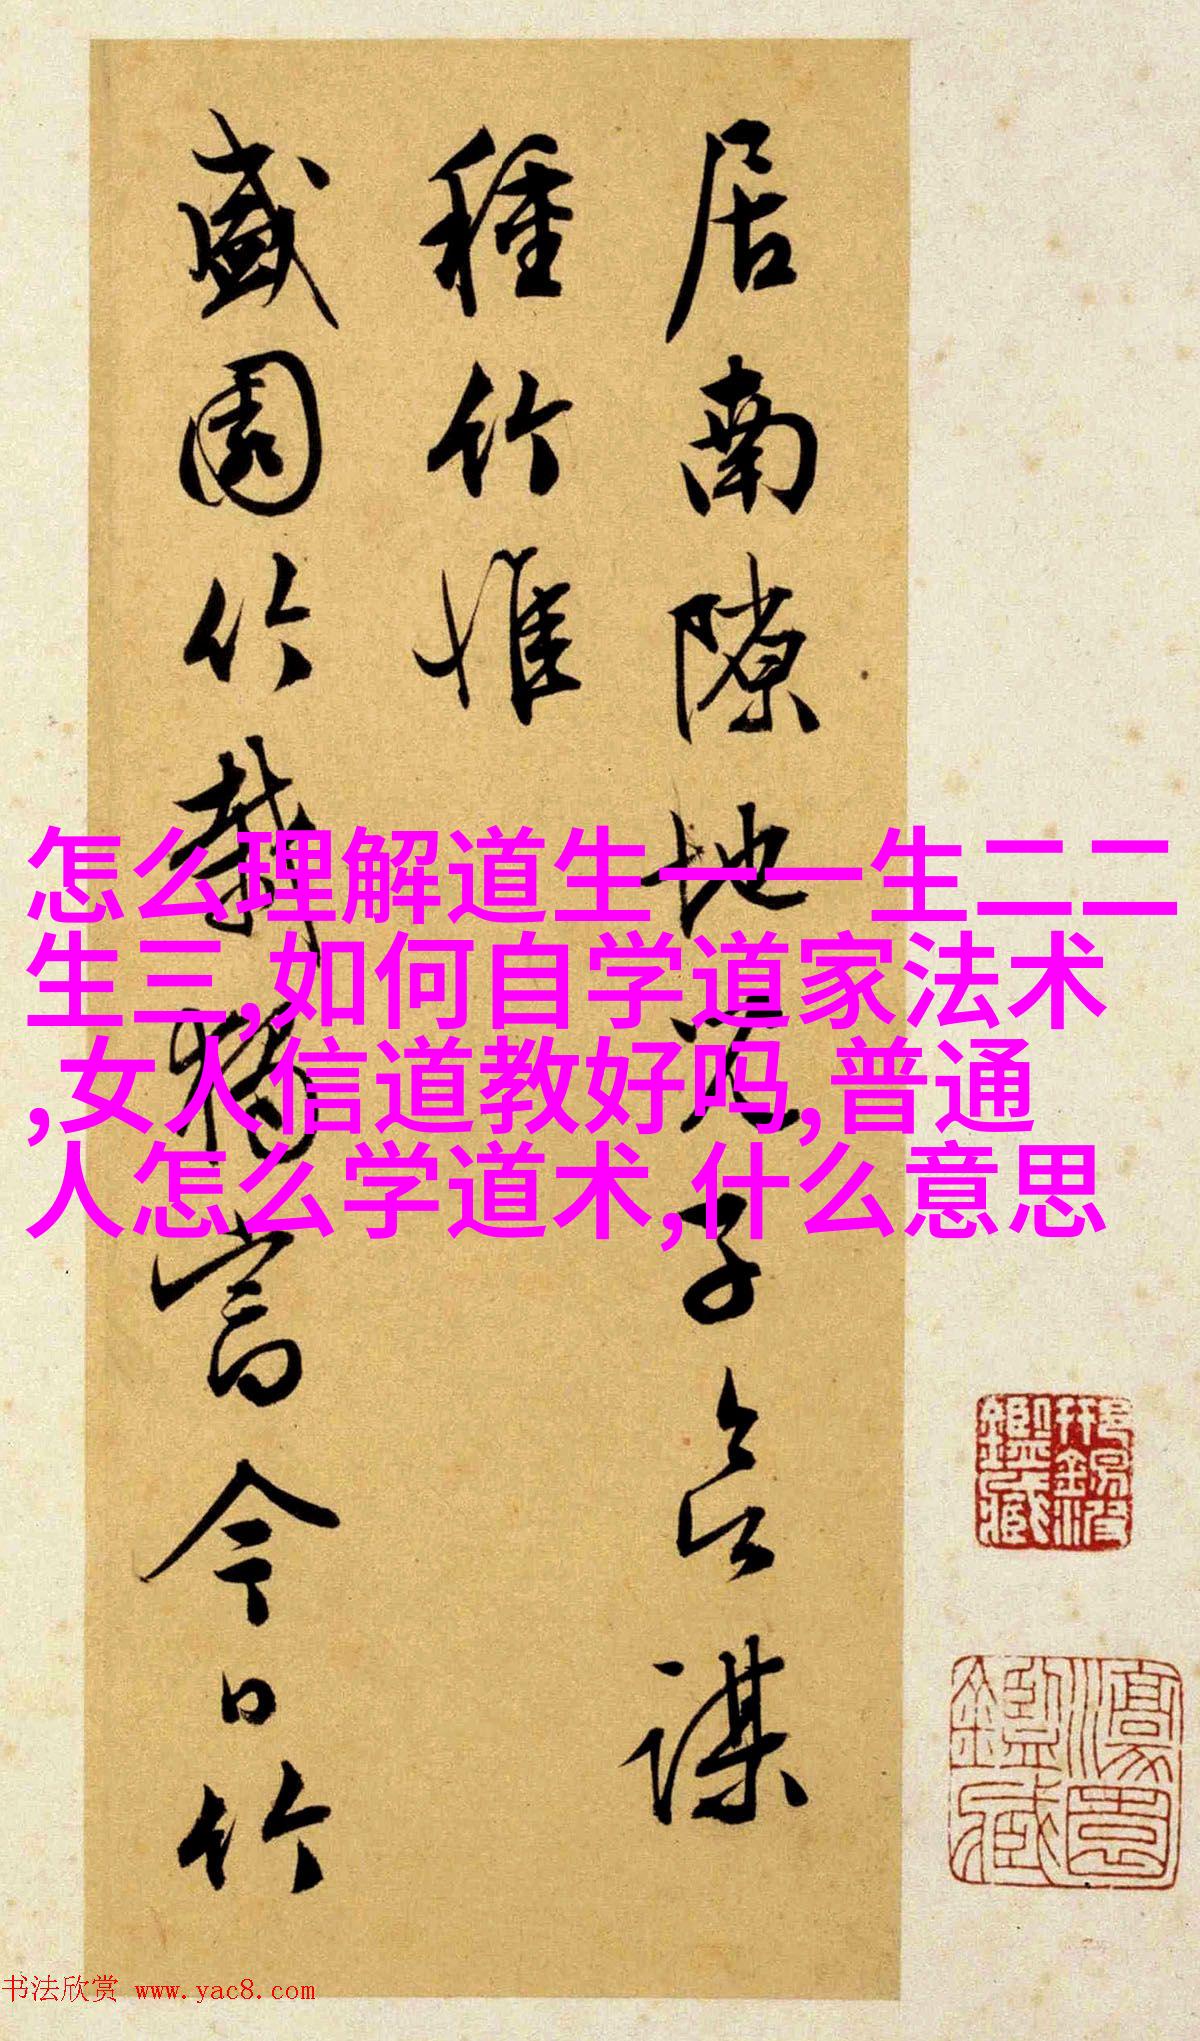 居南隙地子謀
種竹惟
盛園竹今日竹
怎么理解道生一一生二二
生三,如何自学道家法术
,女人信道教好吗,普通
人怎么学道术,什么意思
鑑藏
鑑藏
书法欣赏 www.yac8.com